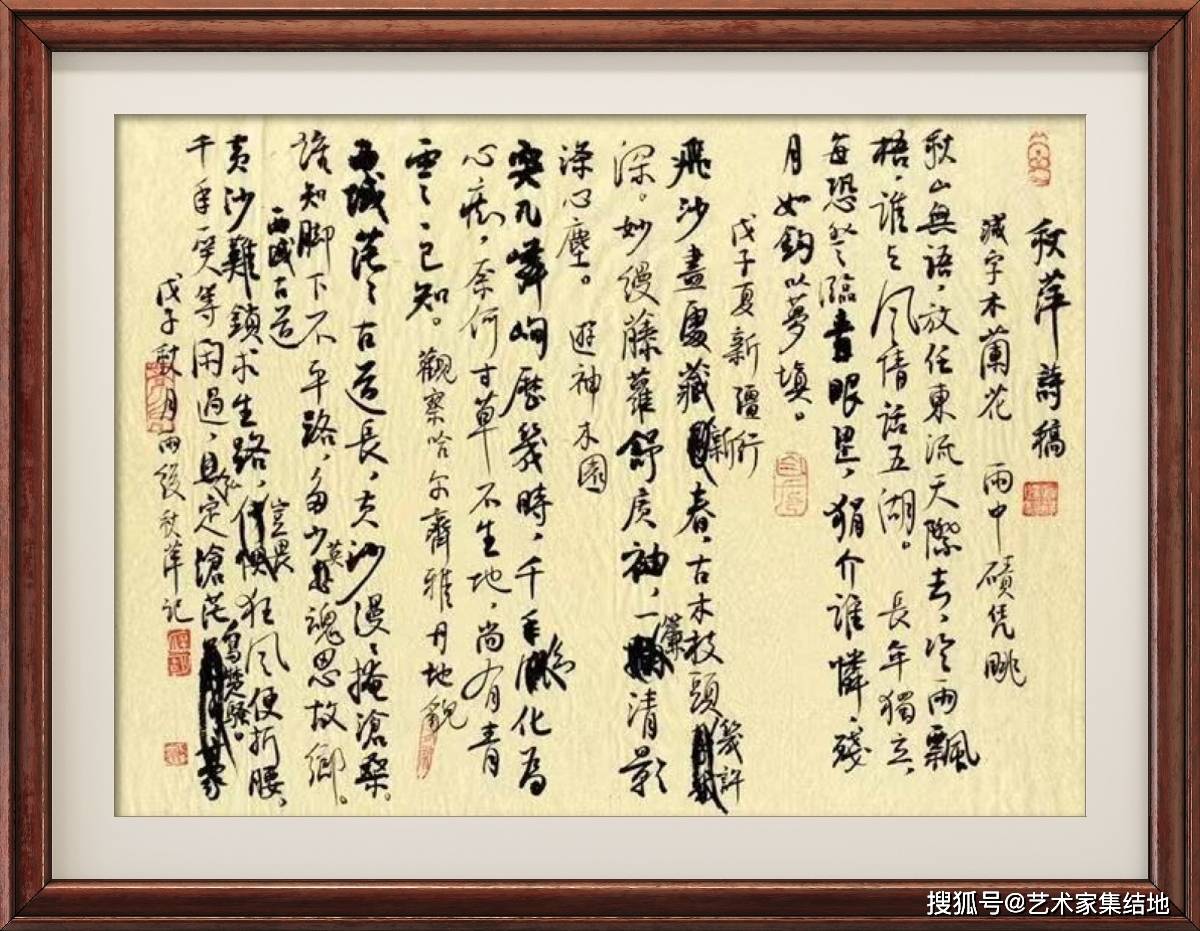 秋萍詩稿
減字木蘭花 雨中磧凭眺
秋山無語，放任東流天際去，冷雨飄
梧，誰与風情話五湖。長年獨立，
每恐登臨青眼悤，狷介誰憐，殘
月如鈎以夢填。
戊子夏新疆行
飛沙盡處藏新春，古木枝頭幾許
深。妙縵藤蘿舒广袖，一簾清影
滌心塵。遊神木園
突兀嶙峋歷幾時，千年化為
心痴，奈何寸草不生地，尚有青
雲已知。觀察哈尔齊雅丹地貌
西域茫茫古道長，黄沙漫漫掩滄桑。
誰知腳下不平路，多少英魂思故鄉。
西域古道
黄沙難鎖求生路，豈畏狂風便折腰，
千年一笑等闲過，定滄茫寫楚騷。
戊子秋月雨後秋萍記
搜狐号@艺术家集结地